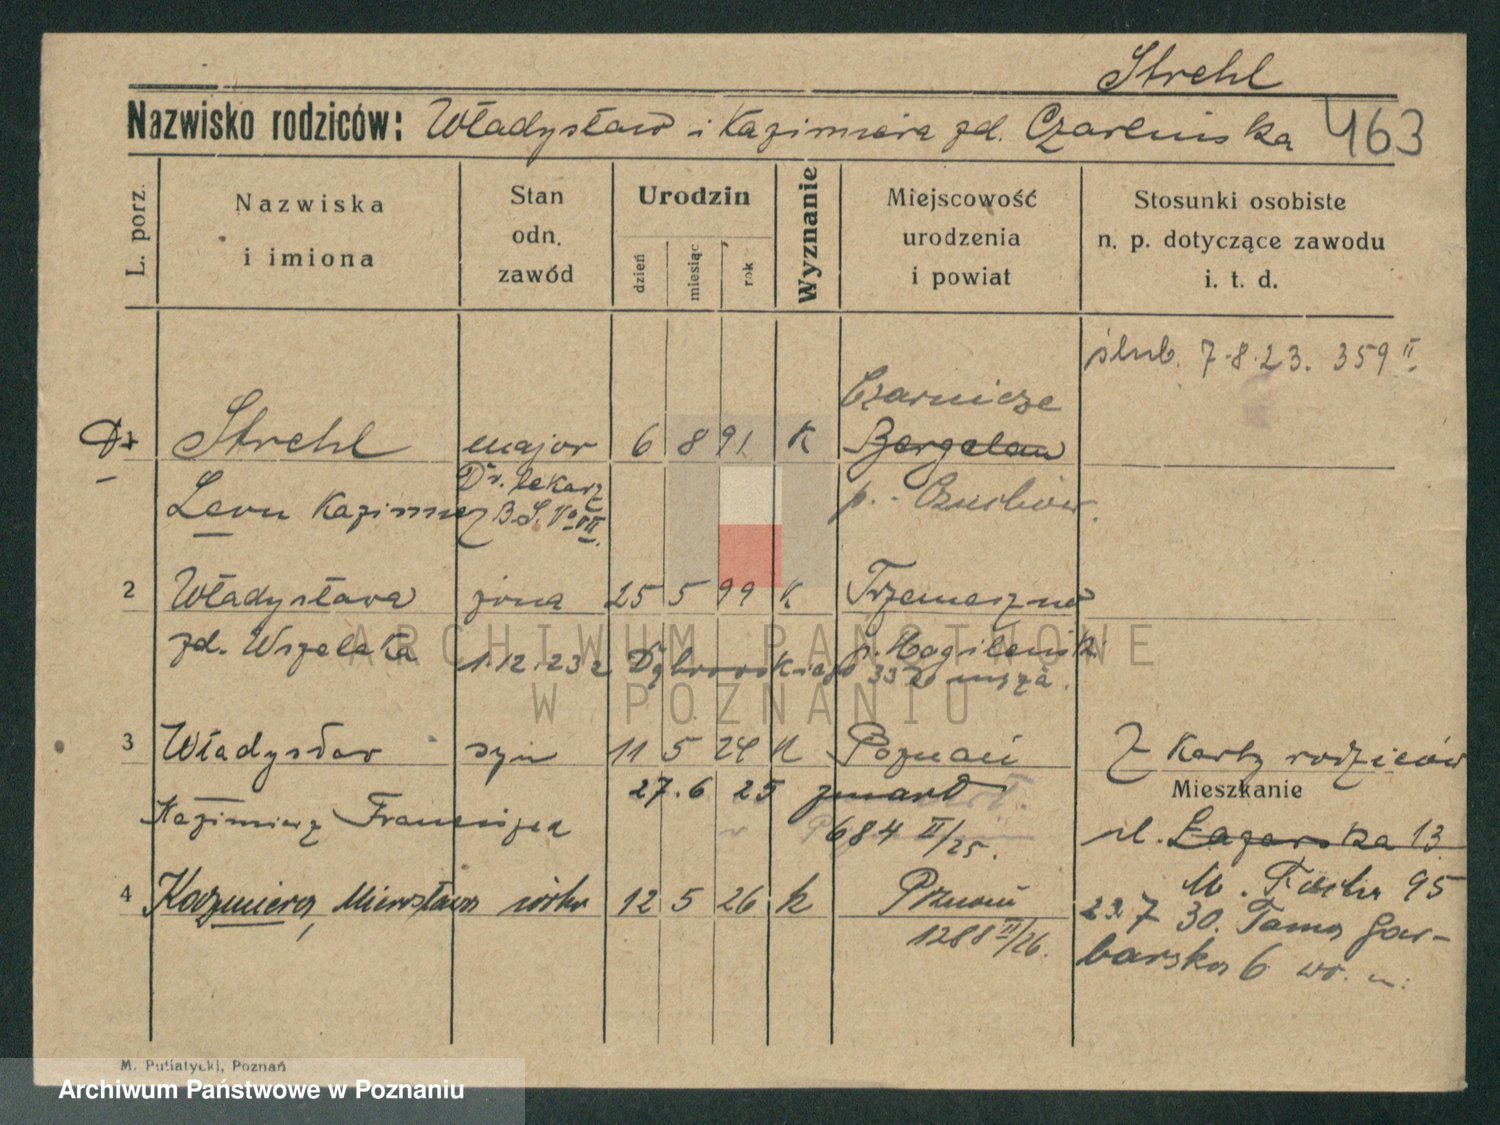 Strehl
Nazwisko rodziców: Władysław i Kazimiera zd. Czarlińska 463
L. porz.
Nazwiska
i imiona
Stan
odn.
zawód
Urodzin
dzień
miesiąc
rok
Wyznanie
Miejscowość
urodzenia
i powiat
Stosunki osobiste
n. p. dotyczące zawodu
i. t. d.
ślub. 7.8.23. 359 II.
Czarnicze
Strehl major 6 8 91 K
Dr. lekarz
Leon Kazimierz
2 Władysława żona 25 5 99 K Trzemeszno
zd. Wszelaka 1.12.23 z Dąbrowskiego 33
p. Mogileński
ARCHIWUM PAŃSTWOWE
W POZNANIU
3 Władysław syn 11 5 24 K Poznań Z Karty rodziców
27.6 25 zmarł
Mieszkanie
Kazimierz Franciszek 684 II/25. ul. Łazarska 13
4 Kazimiera, Mirosława córka 12 5 26 k Poznań M. Focha 95
1288 II/26. 29.7 30. Tama Gar-
barska 6
M. Putiatycki, Poznań
Archiwum Państwowe w Poznaniu